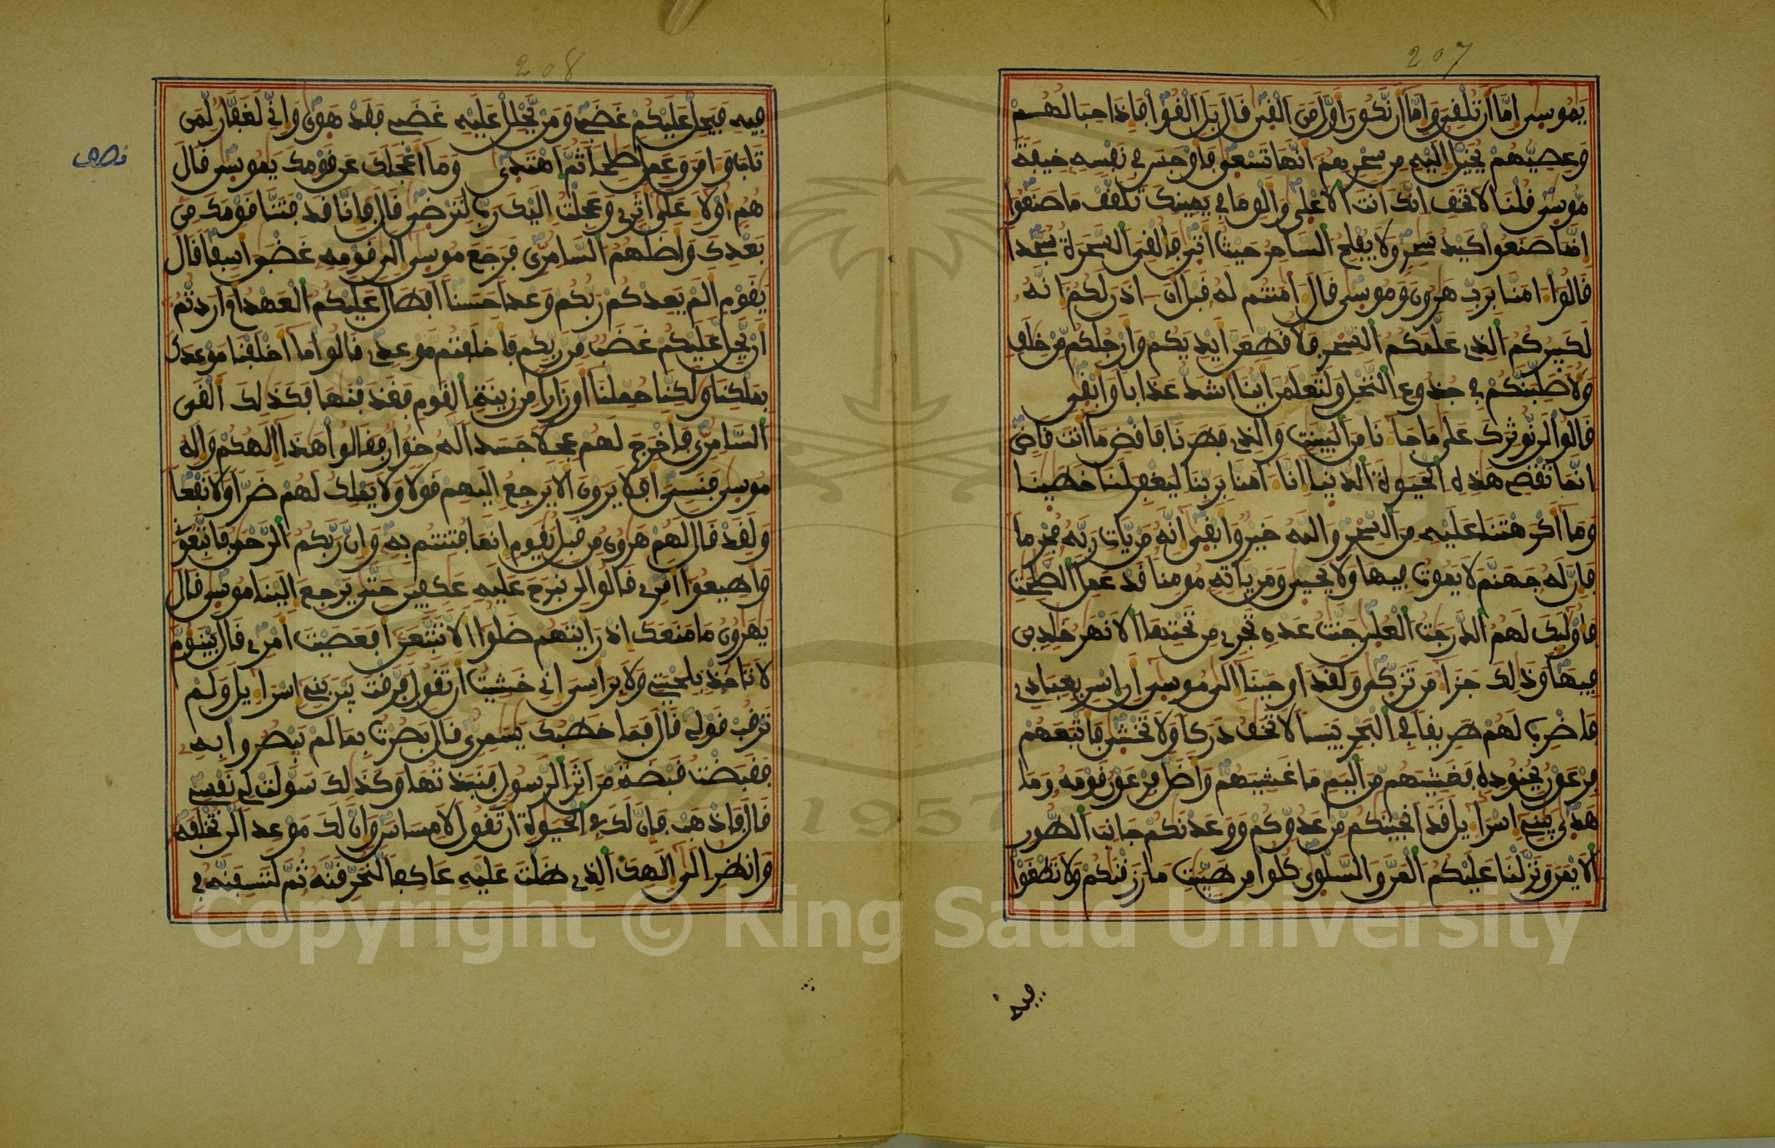 207
يموسى إما أن تلفي وإما أن نكون أول من ألفى فال بل ألفوا فإذا حبالهم
وعصيهم يخيل إليه من سحرهم أنها تسعى فأوجس في نفسه خيفة
موسى فلنا لا تخف إنك أنت الأعلى وألق ما في يمينك تلفف ما صنعوا
إنما صنعوا كيد سحر ولا يفلح الساحر حيث أتى فألفى السحرة سجدا
فالوا ءامنا برب هرون وموسى فال ءامنتم له فبل أن ءاذن لكم إنه
لكبيركم الذي علمكم السحر فلأفطعن أيديكم وأرجلكم من خلف
ولأصلبنكم في جذوع النخل ولتعلمن أينا أشد عذابا وأبفى
فالوا لن نوثرك على ما جاءنا من البينت والذي فطرنا فافض ما أنت فاض
إنما تفضي هذه الحيوة الدنيا إنا ءامنا بربنا ليغفر لنا خطينا
وما أكرهتنا عليه من السحر والله خير وأبفى إنه من يات ربه مجرما
فإن له جهنم لا يموت فيها ولا يحيى ومن ياته مومنا فد عمل الصلحت
فأولئك لهم الدرجت العلى جنت عدن تجري من تحتها الانهر خلدين
فيها وذلك جزاء من تزكى ولفد أوحينا إلى موسى أن اسر بعبادي
فاضرب لهم طريفا في البحر يبسا لا تخف دركا ولا تخشى فاتبعهم
فرعون بجنوده فغشيهم من اليم ما غشيهم وأضل فرعون فومه وما
هدى يبني إسراءيل فد أنجينكم من عدوكم ووعدنكم جانب الطور
الايمن ونزلنا عليكم المن والسلوى كلوا من طيبت ما رزفنكم ولا تطغوا
فيه
208
فيه فيحل عليكم غضبي ومن يحلل عليه غضبي ففد هوى وإني لغفار لمن
تاب وءامن وعمل صلحا ثم اهتدى وما أعجلك عن فومك يموسى فال
نصف
هم أولاء على أثري وعجلت إليك رب لترضى فال فإنا فد فتنا فومك من
بعدك وأضلهم السامري فرجع موسى إلى فومه غضبن أسفا فال
يفوم ألم يعدكم ربكم وعدا حسنا أفطال عليكم العهد أم أردتم
أن يحل عليكم غضب من ربكم فأخلفتم موعدي فالوا ما أخلفنا موعدك
بملكنا ولكنا حملنا أوزارا من زينة الفوم ففذفنها فكذلك ألفى
السامري فأخرج لهم عجلا جسدا له خوار ففالوا هذا إلهكم وإله
موسى فنسي أفلا يرون ألا يرجع إليهم فولا ولا يملك لهم ضرا ولا نفعا
ولفد فال لهم هرون من فبل يفوم إنما فتنتم به وإن ربكم الرحمن فاتبعوني
وأطيعوا أمري فالوا لن نبرح عليه عكفين حتى يرجع إلينا موسى فال
يهرون ما منعك إذ رأيتهم ضلوا ألا تتبعن أفعصيت أمري فال يبنؤم
لا تاخذ بلحيتي ولا براسي إني خشيت أن تفول فرفت بين بني إسراءيل ولم
ترفب فولي فال فما خطبك يسمري فال بصرت بما لم يبصروا به
ففبضت فبضة من أثر الرسول فنبذتها وكذلك سولت لي نفسي
فال فاذهب فإن لك في الحيوة أن تفول لا مساس وإن لك موعدا لن تخلفه
وانظر إلى إلهك الذي ظلت عليه عاكفا لنحرفنه ثم لننسفنه في
Copyright © King Saud University
1957